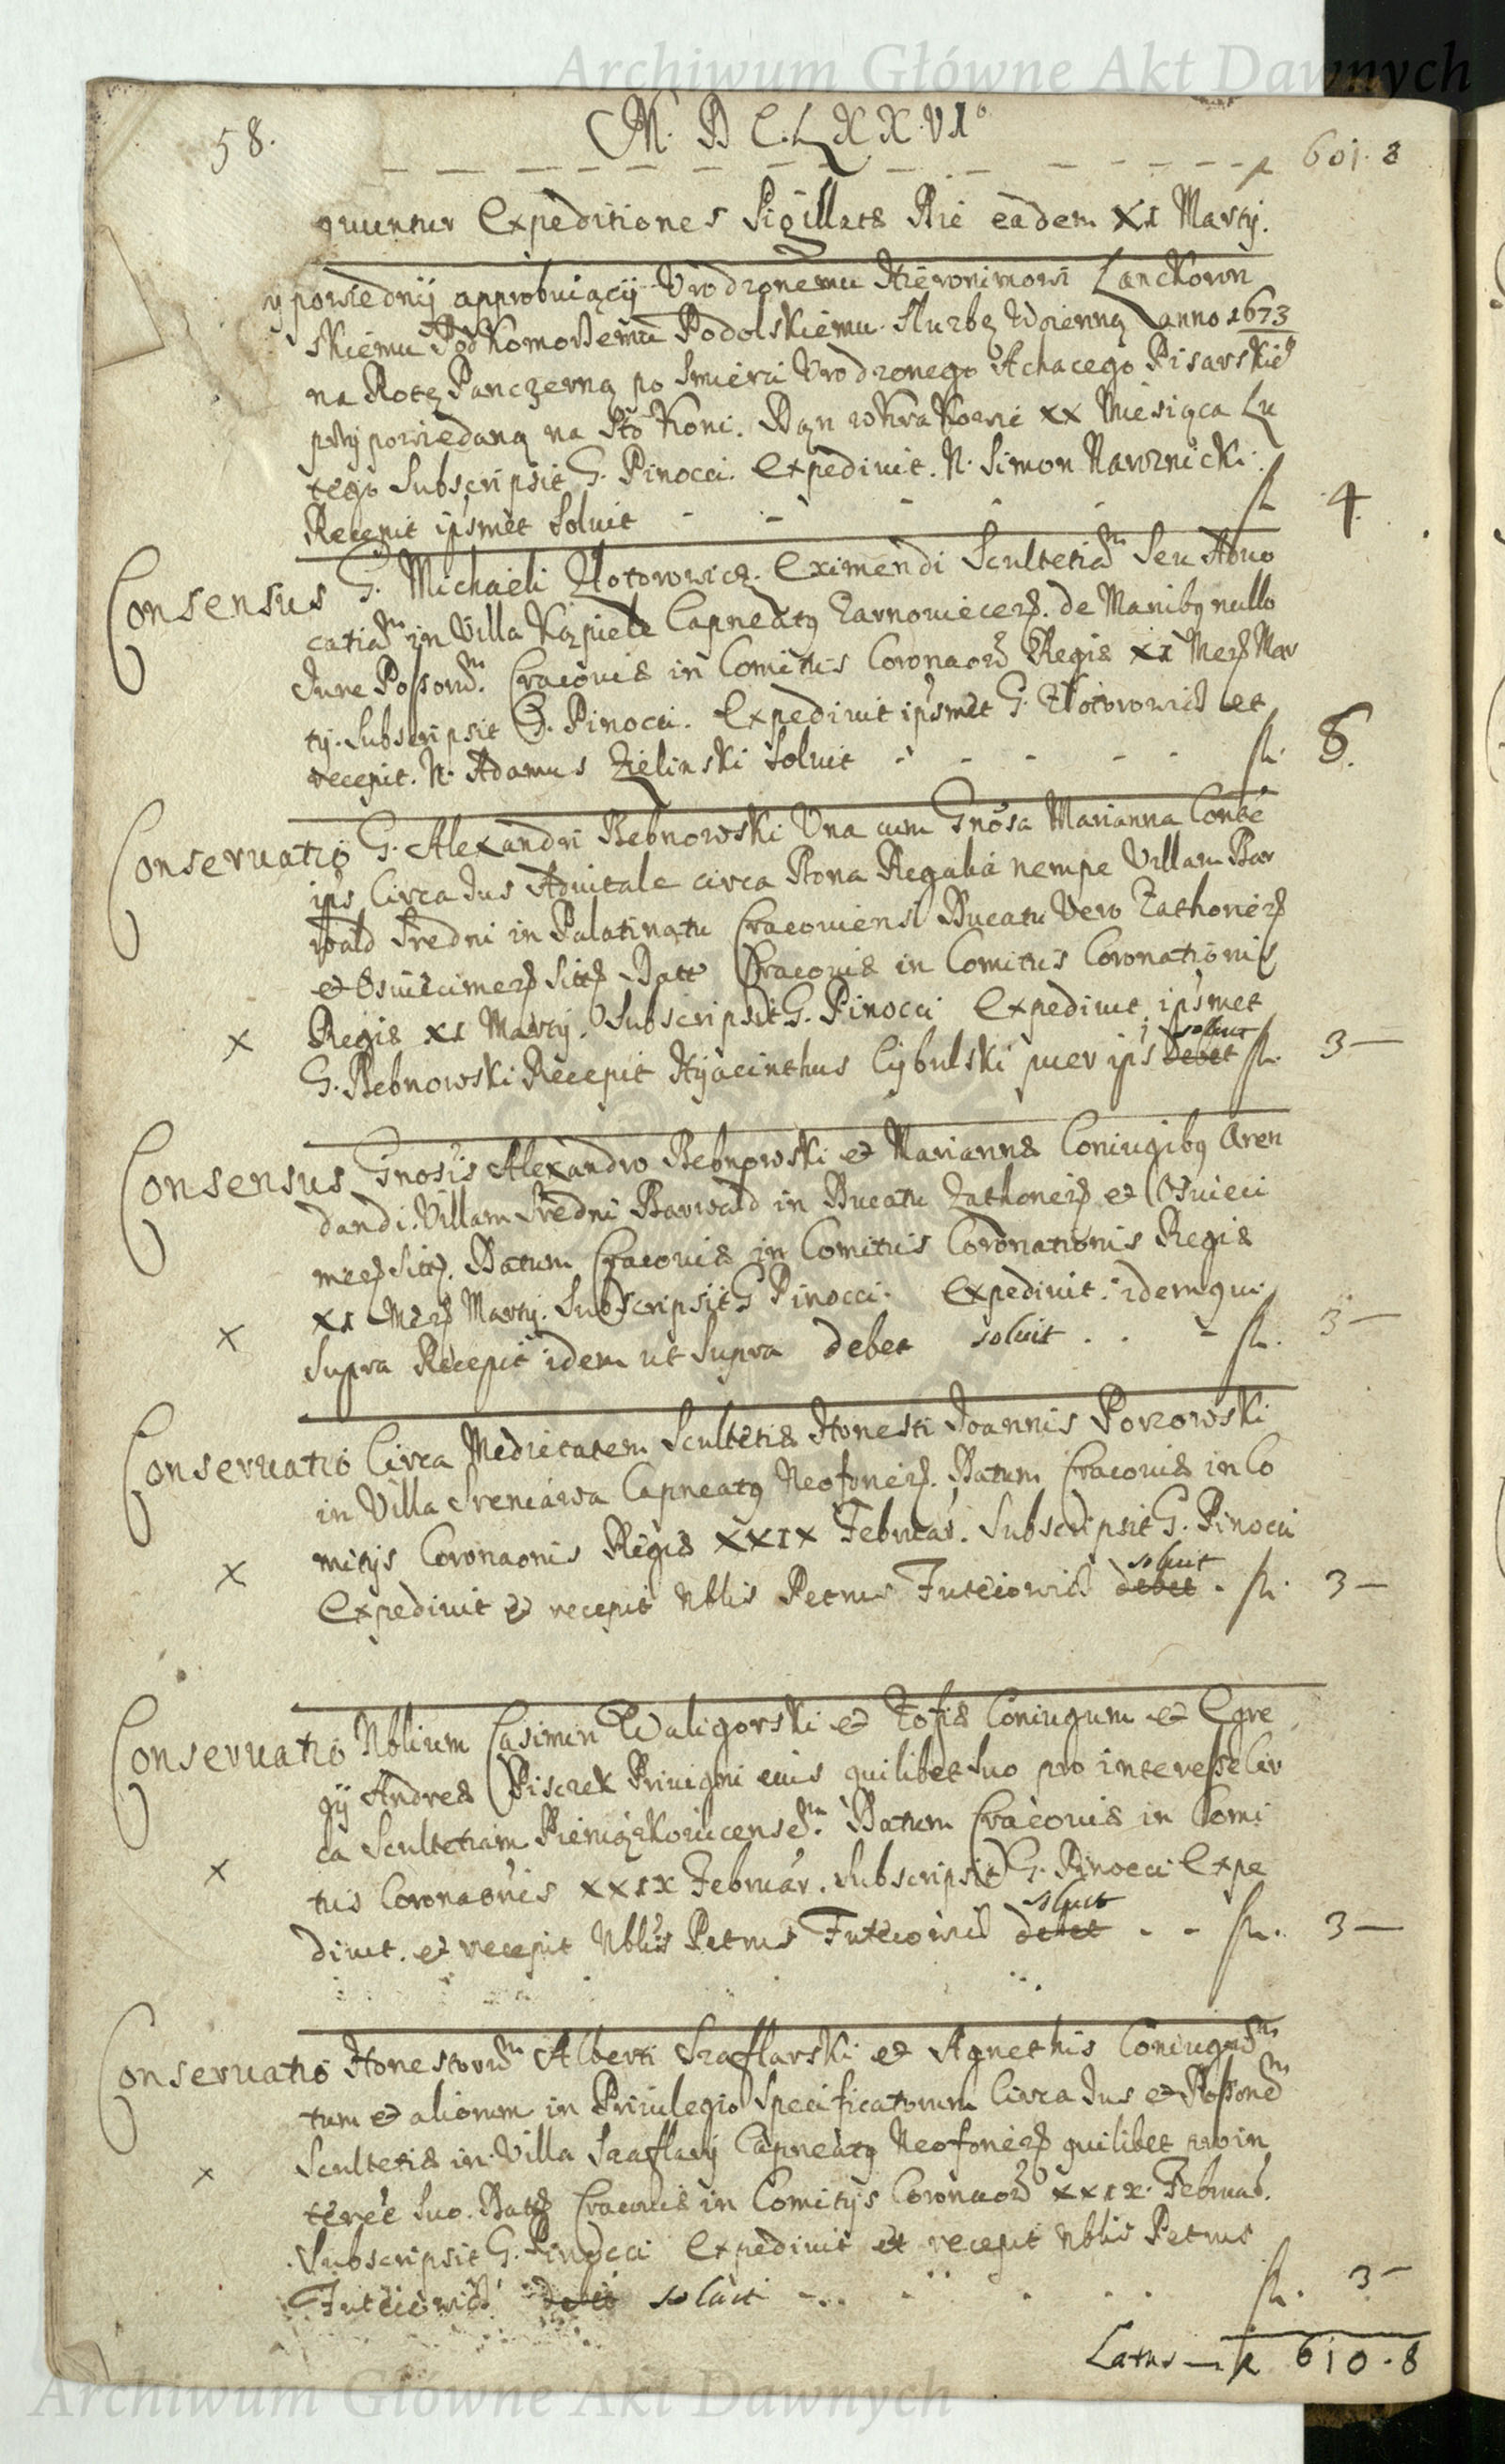 Archiwum Główne Akt Dawnych
58.
M. D C. L X X. VIo
601. 8
quuntur Expeditiones Sigillatæ Die eadem XI Martij.
ypowiednij approbuiącÿ Urodzonemu Hieronimowi Lanckorn
skiemu Podkomorzemu Podolskiemu. Służbę Woienną anno 1673
na Rotę Panczerną po Smierci Urodzonego Achacego Pisarskie
przypowiedaną na Sto Koni. Dan w Krakowie XX Miesiąca Lu
tego Subscripsit G. Pinocci. Expediuit. N. Simon Nawrznicki.
Recepit ipsmet Soluit - - - - - fl 4.
Consensus G. Michaeli Złotowicz. Eximendi Scultetiam Seu Aduo
catiam in Villa Kąpiele Capneatus Zarnouiecens. de Manibus nullo
Iure Possorum. Cracouiæ in Comitiis Coronaoris Regiæ XI Mens Mar
tij. Subscripsit G. Pinocci. Expediuit ipsmet G. Złotowicz et
recepit. N. Adamus Zielinski Soluit - - - - - fl. 8.
Conseruatio G. Alexandri Bebnowski Una cum Gnosa Marianna Conte
ips Circa Ius Aduitale circa Bona Regalia nempe Villam Bar
wald Sredni in Palatinatu Cracouiensi Ducatu Vero Zathoriens
et Osuiecimens sitts Datt Cracouiæ in Comitiis Coronationis
x Regiæ XI Martij. Subscripsit G. Pinocci Expediuit ipsmet
soluit
G. Bebnowski Recepit Hyacinthus Cybulski puer ips debet fl. 3 —
Consensus Gnosis Alexandro Bebnowski et Mariannæ Coniugibus Aren
dandi Villam Sredni Barwald in Ducatu Zathoriens et Osuieci
mens Sitt. Datum Cracouiæ in Comitiis Coronationis Regiæ
XI Mens Martij. Subscripsit G Pinocci. Expediuit. idem qui
x Supra Recepit idem ut Supra debet soluit . . - fl. 3 —
Conseruatio Circa Medietatem Scultetiæ Honesti Joannis Porzowski
in Villa Sreniawa Capneatus Neoforiens. Datum Cracouiæ in Co
mitijs Coronaonis Regiæ XXIX Februar. Subscripsit G. Pinocci
soluit
x Expediuit et recepit Nblis Petrus Futeiowicz debet . fl. 3 —
Conseruatio Nblium Casimiri Waligorski et Zofiæ Coniugum et Egre
gÿ Andreæ Piszek Priuigni eius quilibet Suo pro interesse Cir
ca Scultetiam Pieniązkouicensem. Datum Cracouiæ in Comi
x tiis Coronaonis XXIX Februar. Subscripsit G. Pinocci Expe
soluit
diuit. et recepit Nblis Petrus Futeiowicz debet . - - fl. 3 —
Conseruatio Honestorum Alberti Szaflarski et Agnethis Coniugum
tum et aliorum in Priuilegio Specificatorum Circa Ius et Possonem
x Scultetiæ in Villa Szaflary Capneatus Neoforiens quilibet pro in
teree Suo. Datts Cracouiæ in Comitijs Coronaoris XXIX. Februar.
Subscripsit G. Pinocci Expediuit et recepit Nblis Petrus
Futeiowicz debet soluit - . . fl. 3 -
Latus — fl 610. 8
Archiwum Główne Akt Dawnych